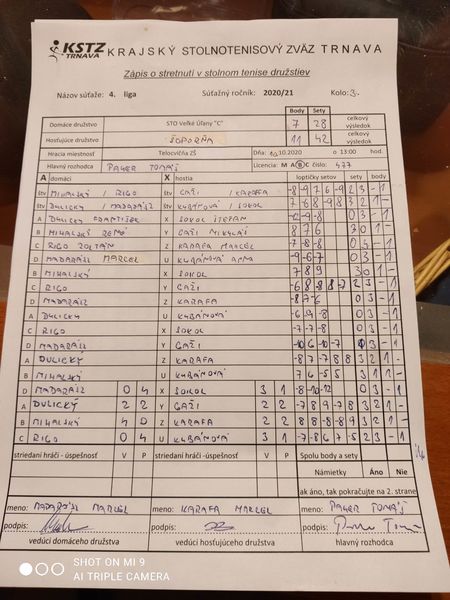 KSTZ TRNAVA KRAJSKÝ STOLNOTENISOVÝ ZVÄZ TRNAVA
Zápis o stretnutí v stolnom tenise družstiev
Názov súťaže: 4. liga Súťažný ročník: 2020/21 Kolo: 3.
Body Sety
Domáce družstvo STO Veľké Úľany "C" 7 28 celkový výsledok
Hosťujúce družstvo ŠOPORŇA 11 42 celkový výsledok
Hracia miestnosť Telocvičňa ZŠ Dňa: 10.2020 o 13:00 hod.
Hlavný rozhodca PAVER TOMÁŠ Licencia: M A B C číslo: 477
A domáci X hostia loptičky setov sety body
štv MIHALSKÝ / RIGO štv GAŽI / KARAFA -8 -9 7 6 -9 2 3 - 1
štv DULICKÝ / MADARÁSZ štv KUBÁNOVÁ / SOKOL 7 6 8 -9 8 3 2 1 -
A DULICKÝ FRANTIŠEK X SOKOL ŠTEFAN 0 3 - 1
B MIHALSKÝ RENÉ Y GAŽI MIKULÁŠ 8 7 6 3 0 1 -
C RIGO ZOLTÁN Z KARAFA MARCEL -7 -8 -8 0 3 - 1
D MADARÁSZ MARCEL U KUBÁNOVÁ ANNA -9 -6 -7 0 3 - 1
B MIHALSKÝ X SOKOL 7 8 9 3 0 1 -
C RIGO Y GAŽI -6 8 -8 8 -7 2 3 - 1
D MADARÁSZ Z KARAFA -8 -7 -6 0 3 - 1
A DULICKÝ U KUBÁNOVÁ -6 -9 -8 0 3 - 1
C RIGO X SOKOL -7 -7 -8 0 3 - 1
D MADARÁSZ Y GAŽI -10 -6 -10 -7 3 - 1
A DULICKÝ Z KARAFA -8 7 -7 8 8 3 2 1 -
B MIHALSKÝ U KUBÁNOVÁ 7 6 -5 5 3 1 1 -
D MADARÁSZ 0 4 X SOKOL 3 1 -8 -10 -12 0 3 - 1
A DULICKÝ 2 2 Y GAŽI 2 2 -7 8 9 -7 8 3 2 1 -
B MIHALSKÝ 4 0 Z KARAFA 2 2 8 -8 8 -8 9 3 2 1 -
C RIGO 0 4 U KUBÁNOVÁ 3 1 -7 -8 6 7 -5 2 3 - 1
striedaní hráči - úspešnosť V P striedaní hráči - úspešnosť V P Spolu body a sety:
Námietky Áno Nie
ak áno, tak pokračujte na 2. strane
meno: MADARÁSZ MARCEL meno: KARAFA MARCEL meno: PAVER TOMÁŠ
podpis: podpis: podpis:
vedúci domáceho družstva vedúci hosťujúceho družstva hlavný rozhodca
SHOT ON MI 9
AI TRIPLE CAMERA